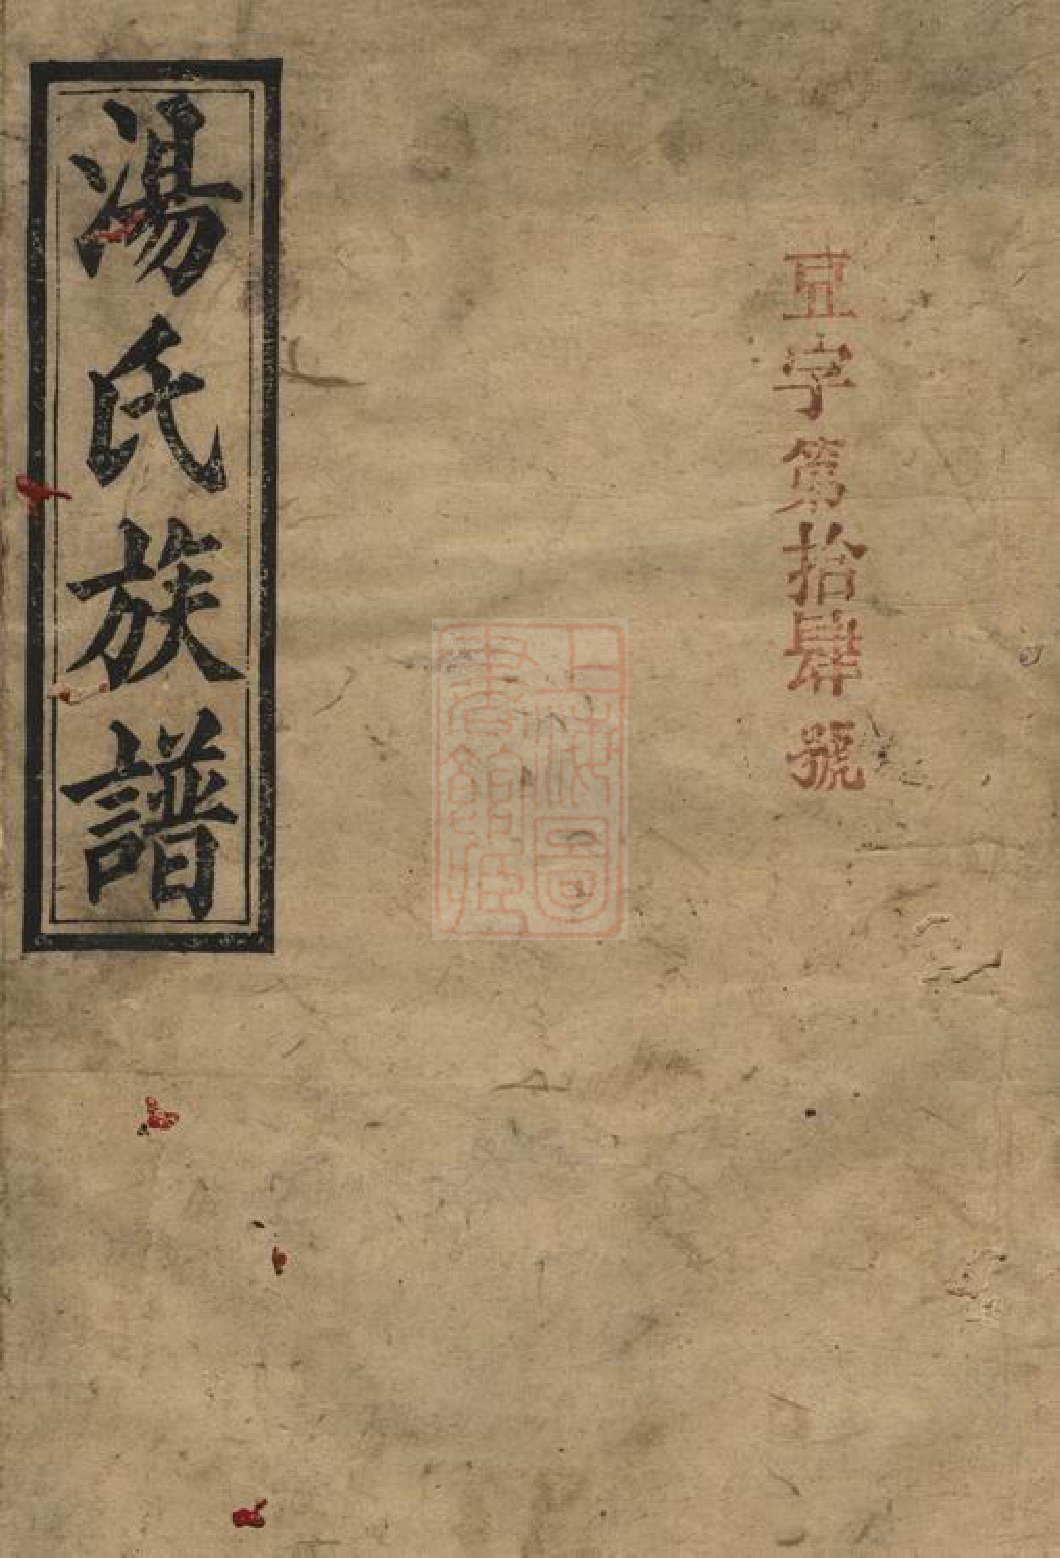 字第拾肆號
湯氏族譜
上海圖
書館藏